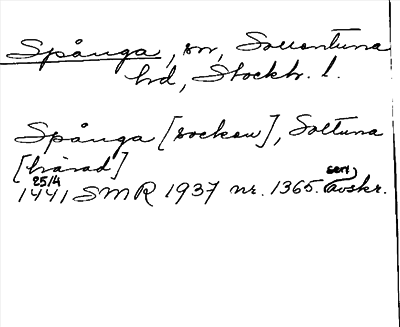 Spånga, sn, Sollentuna
hd, Stockh. l.
Spånga [socken], Soltuna
[härad]
25/4
1441 SMR 1937 nr. 1365. sen avskr.